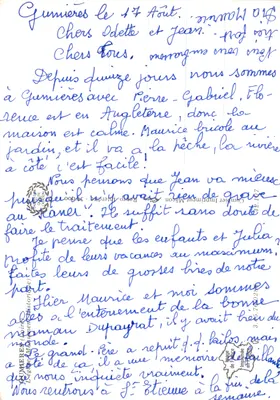 Gumières le 17 Août.
Chers Odette et Jean.
Chers Tous.
Depuis quinze jours nous sommes
à Gumières avec Pierre-Gabriel. Flo-
rence est en Angleterre, donc la
maison est calme. Maurice bricole au
jardin, et il va à la pêche, la rivière
à côté, c'est facile!
Nous pensons que Jean va mieux
puisqu'il n'avait rien de grave
au Il suffit sans doute de
faire le traitement.
Je pense que les enfants et Julia
profite de leurs vacances au maximum,
faites leurs de grosses bises de notre
part.
Hier Maurice et moi sommes
allés à l'enterrement de la bonne
maman Dupayrat, il y avait bien du
monde.
grand-Père a reprit q.q. kilos, mais
à côté de ça, il a une mémoire défaillante
qui nous inquiète vraiment.
Nous rentrons à St Etienne à la fin de la
semaine.